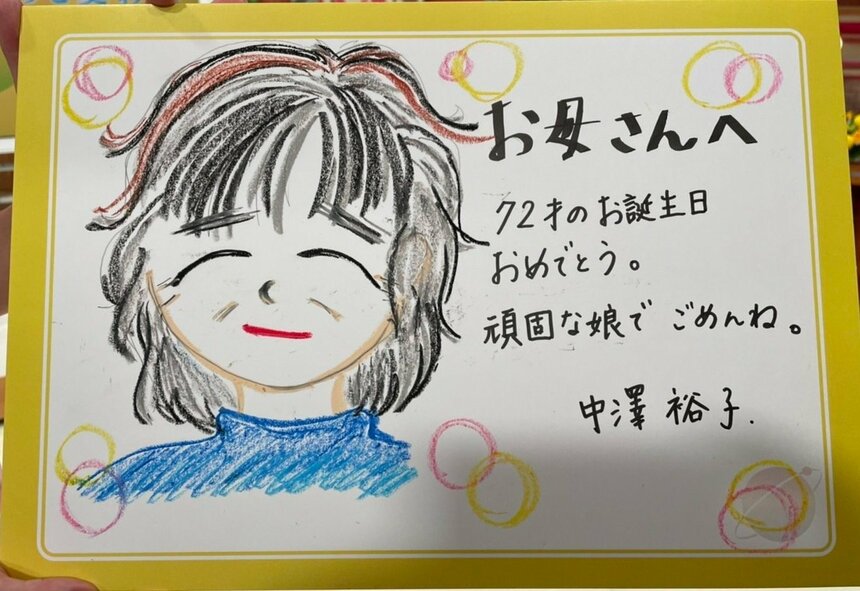 お母さんへ
72才のお誕生日
おめでとう。
頑固な娘で ごめんね。
中澤 裕子.